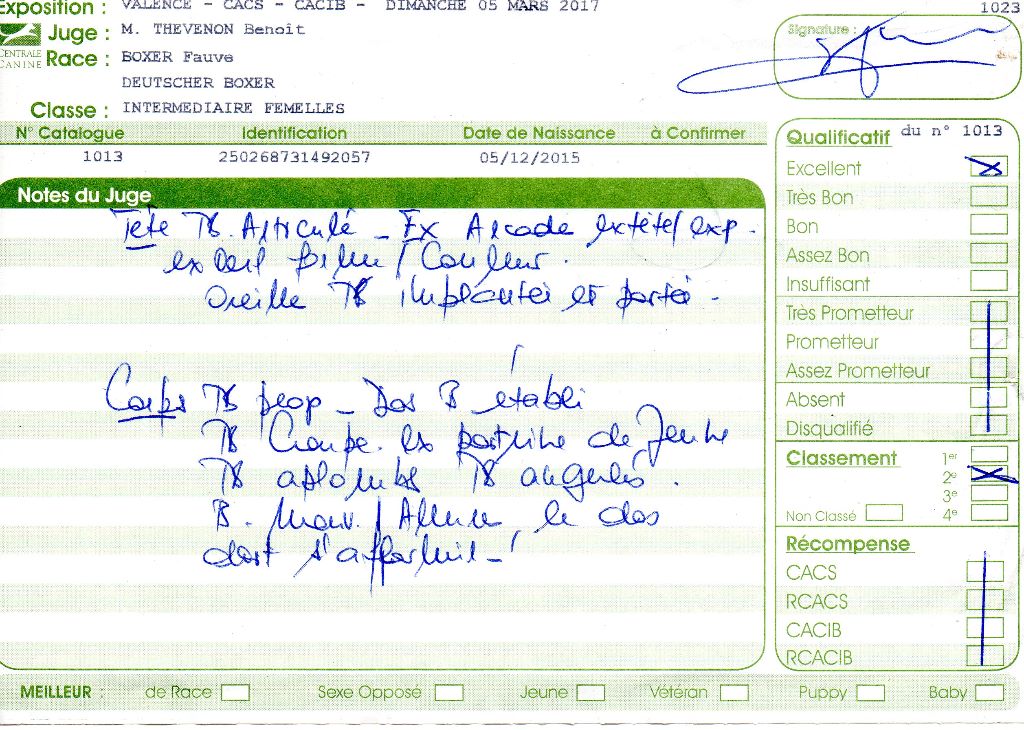 Exposition : VALENCE - CACS - CACIB - DIMANCHE 05 MARS 2017
1023
Juge : M. THEVENON Benoît
CENTRALE CANINE
Race : BOXER Fauve
DEUTSCHER BOXER
Classe : INTERMEDIAIRE FEMELLES
Signature :
N° Catalogue Identification Date de Naissance à Confirmer
1013 250268731492057 05/12/2015
Notes du Juge
Tête TB. Articulé - Ex Arcade ex tête/exp.
ex oeil forme/Couleur.
Oreille TB implantée et portée.
Corps TB prop - Dos B établi
TB Croupe. ex poitrine de jeune
TB aplombs TB angulés.
B. Mouv. / Allure le dos
doit s'affermir - !
Qualificatif du n° 1013
Excellent
Très Bon
Bon
Assez Bon
Insuffisant
Très Prometteur
Prometteur
Assez Prometteur
Absent
Disqualifié
Classement 1er
2e
3e
Non Classé 4e
Récompense
CACS
RCACS
CACIB
RCACIB
MEILLEUR : de Race Sexe Opposé Jeune Vétéran Puppy Baby